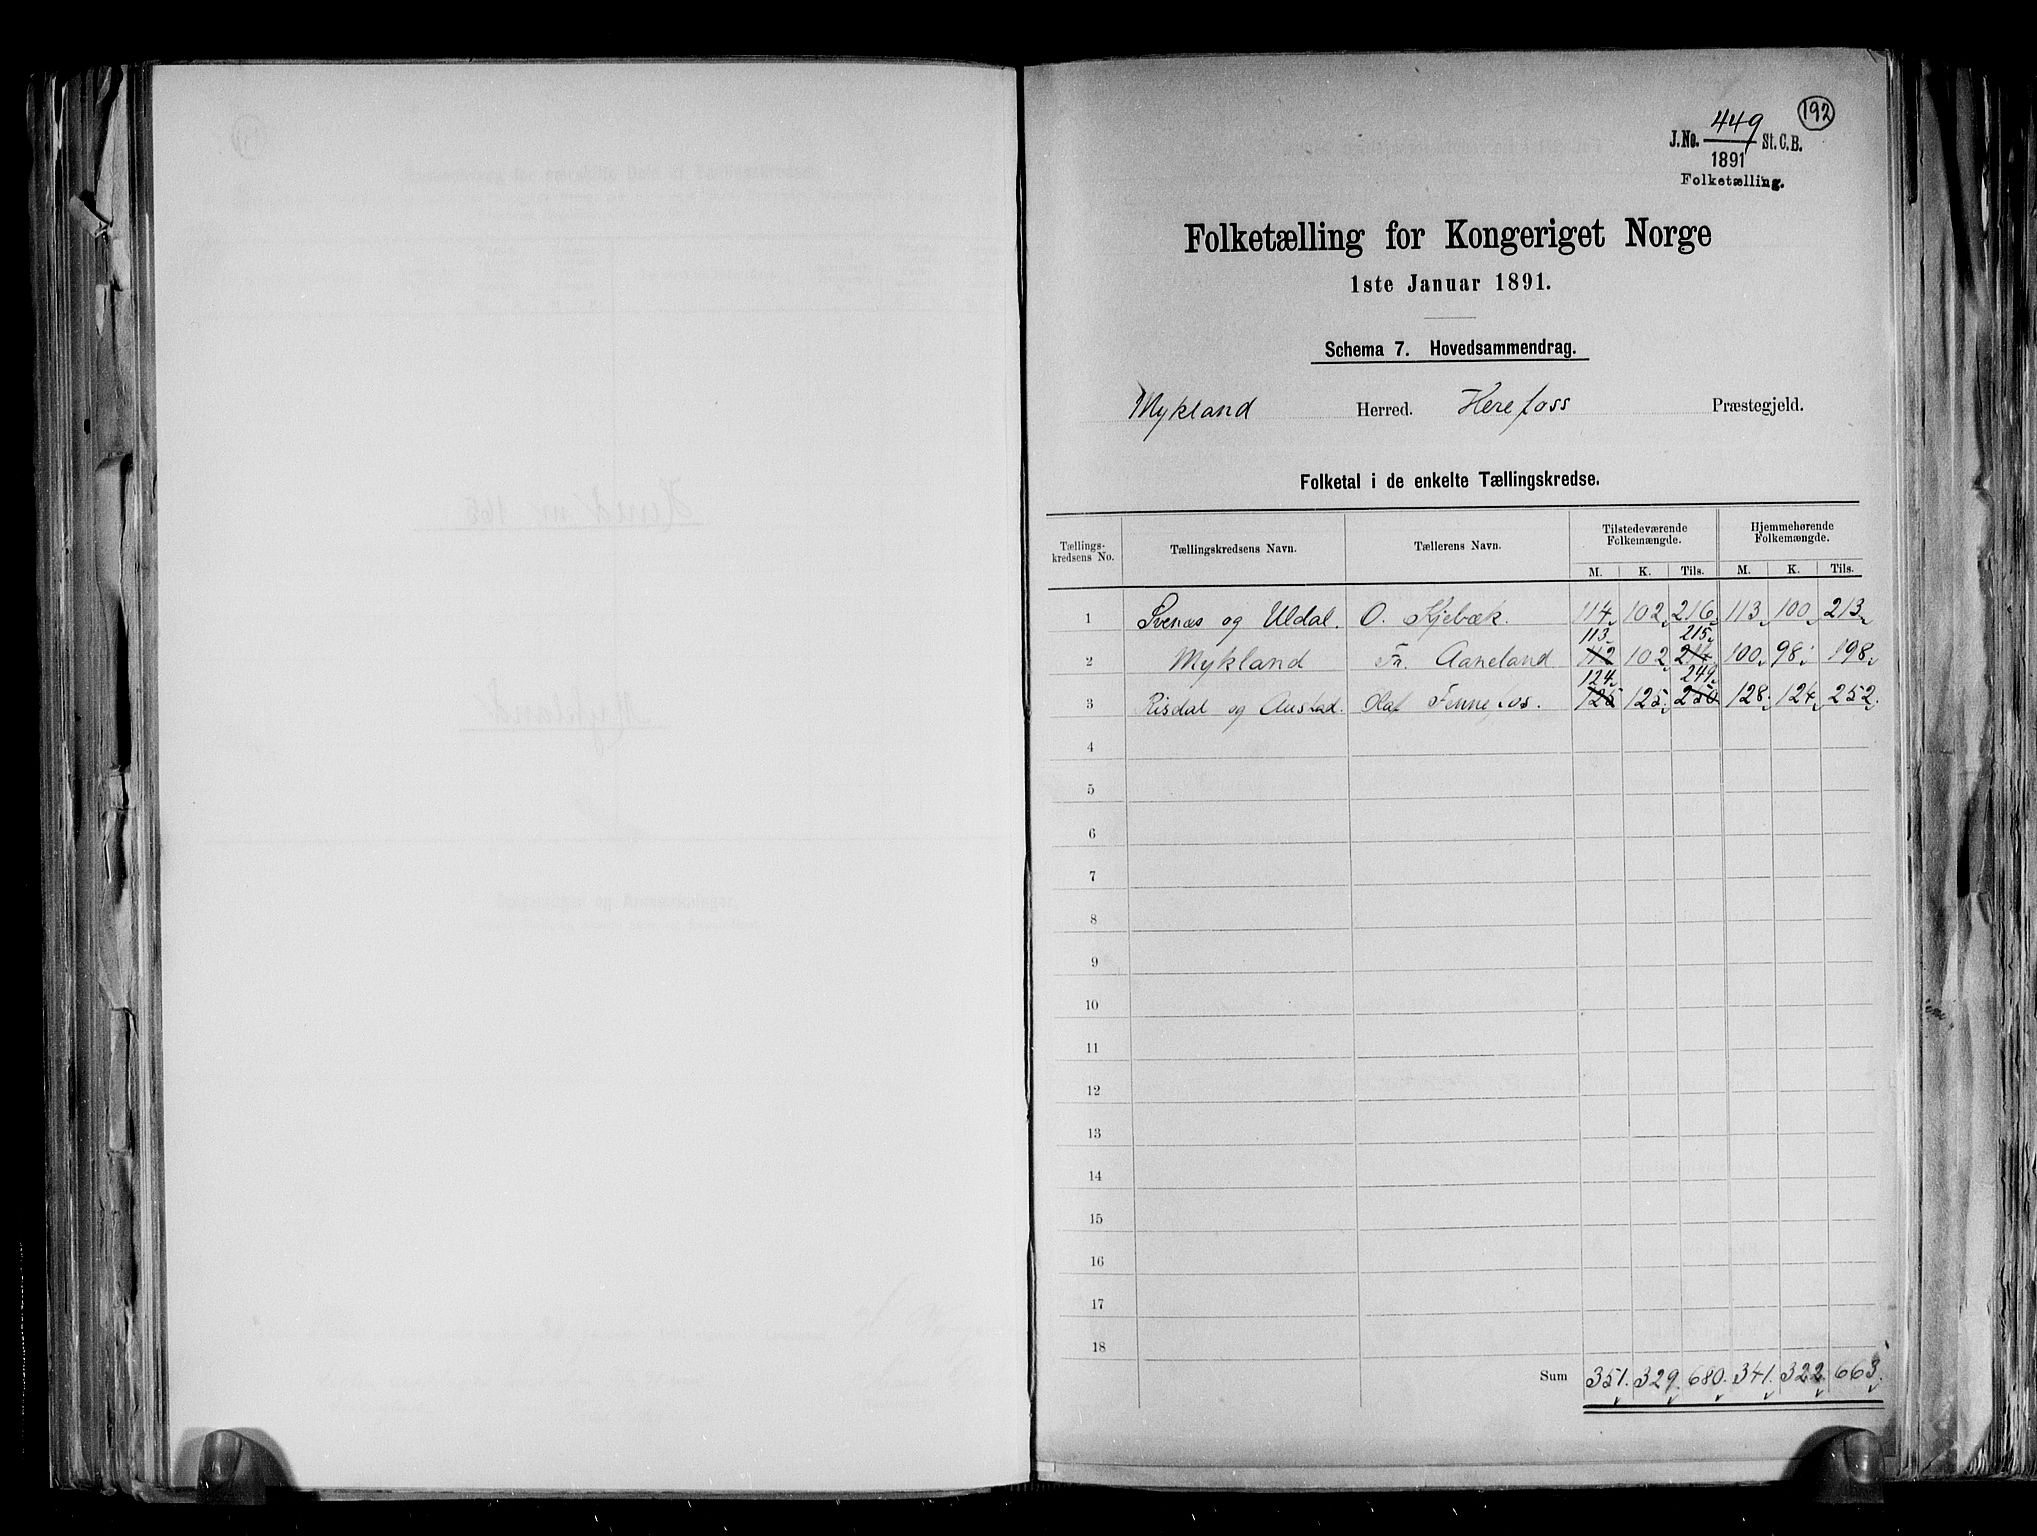 192
J. No. 449 St. C. B.
1891
Folketælling.
Folketælling for Kongeriget Norge
1ste Januar 1891.
Schema 7. Hovedsammendrag.
Mykland Herred. Herefoss Præstegjeld.
Folketal i de enkelte Tællingskredse.
Tællings-kredsens No. Tællingskredsens Navn. Tællerens Navn. Tilstedeværende Folkemængde. Hjemmehørende Folkemængde.
M. K. Tils. M. K. Tils.
1 Svenæs og Uldal. O. Kjebæk. 114 102 216 113 100 213
113 215
2 Mykland Fr. Aaneland 112 102 214 100 98 198
124 249
3 Risdal og Austad. Olaf Fennefos. 125 125 250 128 124 252
4
5
6
7
8
9
10
11
12
13
14
15
16
17
18
Sum 351. 329. 680. 341. 322. 663.
Herred nr 168
Mykland